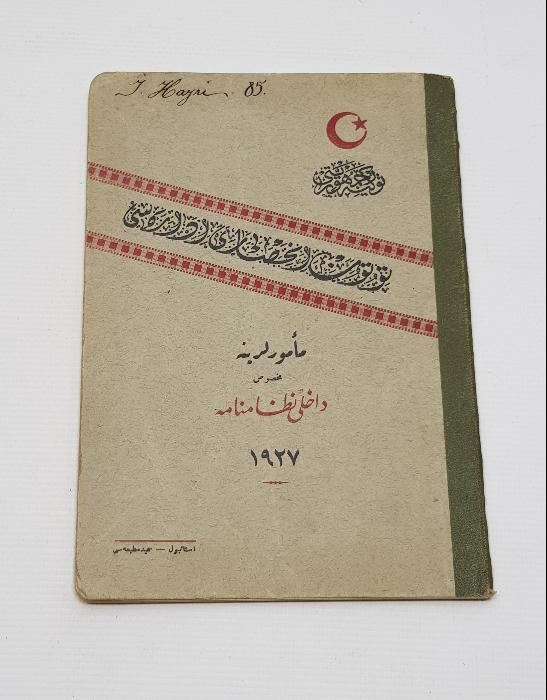 I. Hayri 85.
توركيه جمهوريتى
توتون انحصارى اداره سى
مأمورلرينه
مخصوص
داخلى نظامنامه
١٩٢٧
استانبول — مطبعه سى